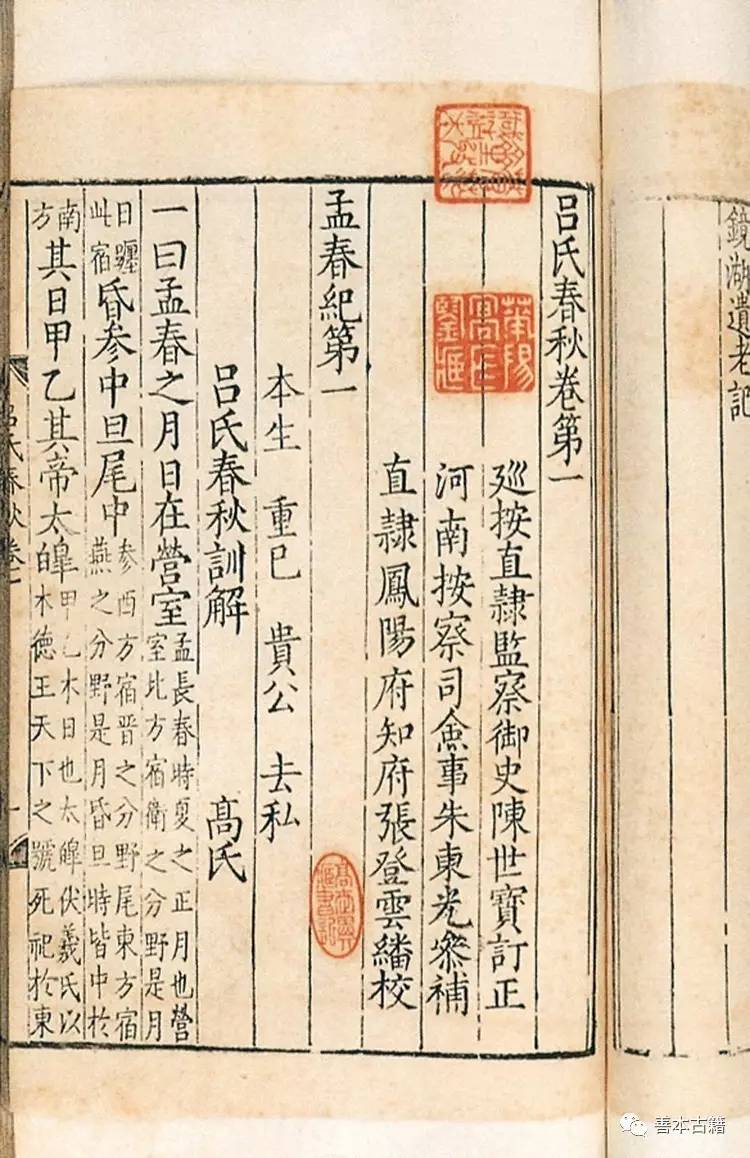 鏡湖遺老記
呂氏春秋卷第一
廵按直隸監察御史陳世寶訂正
河南按察司僉事朱東光叅補
直隸鳳陽府知府張登雲繙校
孟春紀第一
本生 重巳 貴公 去私
呂氏春秋訓解 髙氏
一曰孟春之月日在營室孟長春時夏之正月也營室北方宿衛之分野是月
日躔此宿昏參中旦尾中參西方宿晉之分野尾東方宿燕之分野是月昏旦時皆中於
南方其日甲乙其帝太皥甲乙木日也太皥伏羲氏以木德王天下之號死祀於東
呂氏春秋卷一
華陽高氏鑒藏
善本古籍